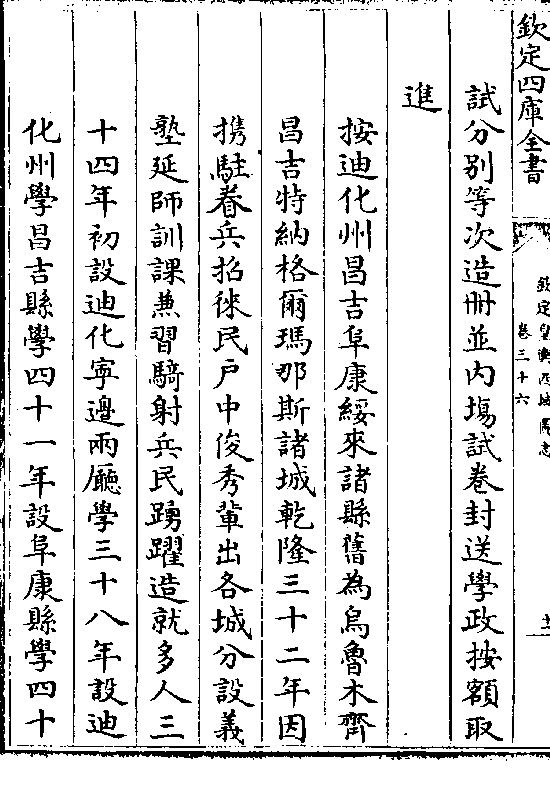 欽定四庫全書
欽定皇輿西域圖志
卷三十六
試分别等次造册並内塲試卷封送學政按額取
進
按迪化州昌吉阜康綏來諸縣舊為烏魯木齊
昌吉特納格爾瑪那斯諸城乾隆三十二年因
携駐眷兵招徠民户中俊秀輩出各城分設義
塾延師訓課兼習騎射兵民踴躍造就多人三
十四年初設迪化寧邊兩廳學三十八年設迪
化州學昌吉縣學四十一年設阜康縣學四十